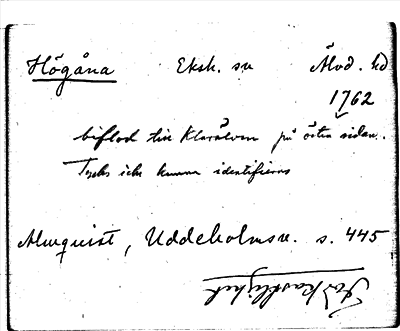 Högåna Eksh. sn Älvd. hd
1762
biflod till Klarälven på östra sidan.
Tycks icke kunna identifieras
Almquist, Uddeholmsv. s. 445